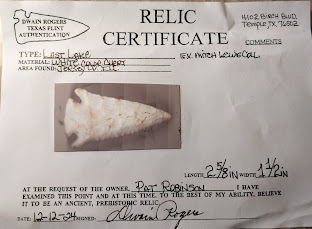 DWAIN ROGERS
TEXAS FLINT
AUTHENTICATION
RELIC
CERTIFICATE
4102 BIRCH BLVD.
TEMPLE TX, 76502
COMMENTS
TYPE: LOST LAKE
EX. MITCH LEWIS COLL
MATERIAL: WHITE COLOR CHERT
AREA FOUND: JERSEY CO. ILL
LENGTH 2 5/8 in WIDTH 1 1/2 in
AT THE REQUEST OF THE OWNER, PAT ROBINSON I HAVE
EXAMINED THIS POINT AND AT THIS TIME, TO THE BEST OF MY ABILITY, BELIEVE
IT TO BE AN ANCIENT, PREHISTORIC RELIC.
DATE: 12-12-24 SIGNED: Dwain Rogers